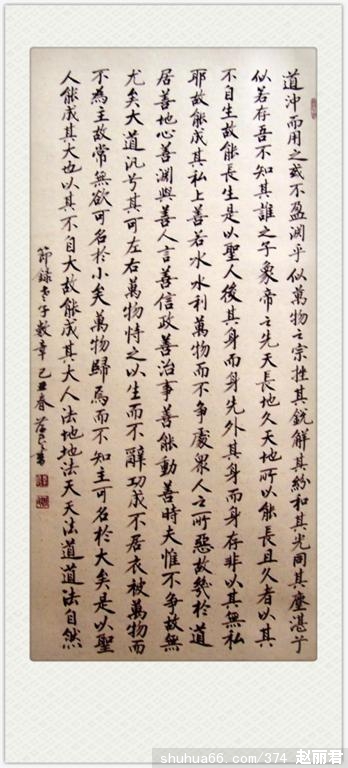 道沖而用之或不盈渊乎似萬物之宗挫其銳解其紛和其光同其塵湛乎
似若存吾不知其誰之子象帝之先天長地久天地所以能長且久者以其
不自生故能長生是以聖人後其身而身先外其身而身存非以其無私
耶故能成其私上善若水水利萬物而不爭處眾人之所惡故幾於道
居善地心善渊與善人言善信政善治事善能動善時夫惟不爭故無
尤矣大道汎兮其可左右萬物恃之以生而不辭功成不居衣被萬物而
不為主故常無欲可名於小矣萬物歸焉而不知主可名於大矣是以聖
人能成其大也以其不自大故能成其大人法地地法天天法道道法自然
節錄老子數章 己丑春
shuhua66.com/374 赵丽君